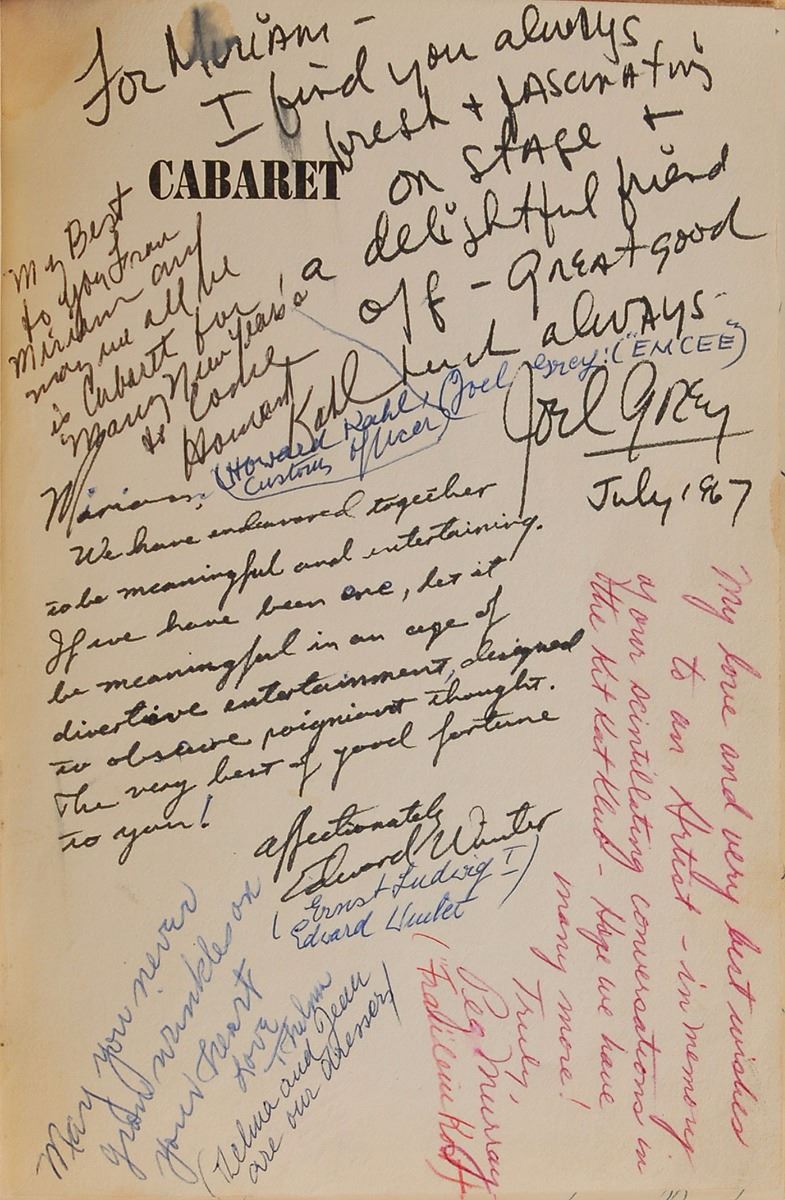 For Miriam -
I find you always
fresh + fascinating
on stage +
a delightful friend
off - Great good
luck always -
Joel Grey
July 1967
(Joel Grey: ("EMCEE")
CABARET
My Best
to you From
Miriam and
may we all be
in Cabaret for
Many New Years
to Come
Howard Kahl
(Howard Kahl,
Customs Officer)
Miriam,
We have endeavored together
to be meaningful and entertaining.
If we have been one, let it
be meaningful in an age of
divertive entertainment, designed
to obscure poigniant thought.
The very best of good fortune
to you!
affectionately
Edward Winter
(Ernst Ludwig I)
Edward
My love and very best wishes
to an Artist - in memory
of our scintillating conversations in
the Kit Kat Klub - Hope we have
many more!
Truly,
Peg Murray
(Fraulein Kost)
May you never
grow wrinkles on
your heart
Love
Thelma
(Thelma and Jean
are our dressers)